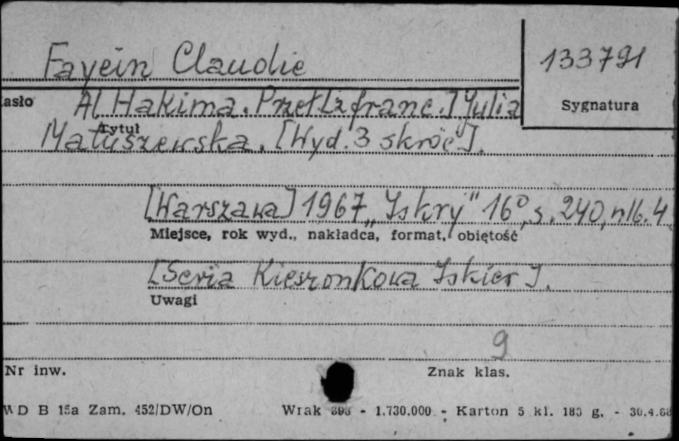 Fayein Claudie
133791
asło
Al Hakima. Przeł. [z franc.] Julia
Sygnatura
tytuł
Matuszewska. [Wyd. 3 skróc.].
[Warszawa] 1967 „Iskry" 16°, s. 240, nlb. 4
Miejsce, rok wyd., nakładca, format, obiętość
[Seria Kieszonkowa Iskier].
Uwagi
9
Nr inw.
Znak klas.
WD B 15a Zam. 452/DW/On
Wrak - 1.730.000 - Karton 5 kl. 180 g. - 30.4.68